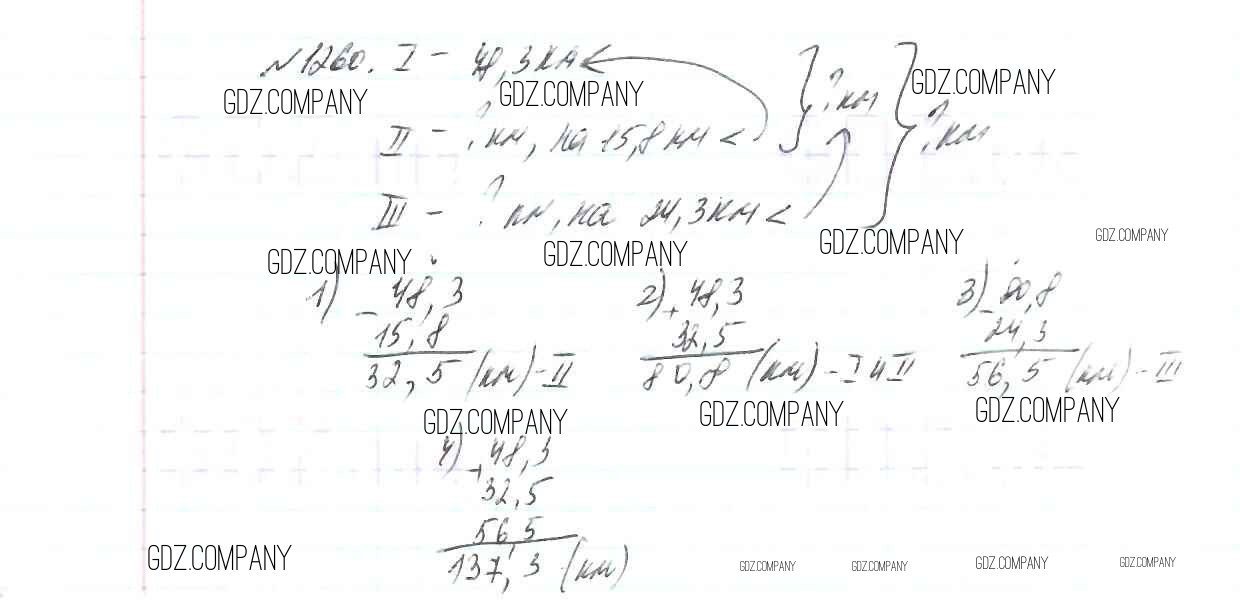 №1260. I - 48,3 км <
GDZ.COMPANY GDZ.COMPANY ? км GDZ.COMPANY
II - ? км, на 15,8 км < ? км
III - ? км, на 24,3 км <
GDZ.COMPANY GDZ.COMPANY GDZ.COMPANY GDZ.COMPANY
1) - 48,3 2) + 48,3 3) - 80,8
15,8 32,5 24,3
32,5 (км) - II 80,8 (км) - I и II 56,5 (км) - III
GDZ.COMPANY GDZ.COMPANY GDZ.COMPANY
4) + 48,3
32,5
56,5
137,3 (км)
GDZ.COMPANY GDZ.COMPANY GDZ.COMPANY GDZ.COMPANY GDZ.COMPANY